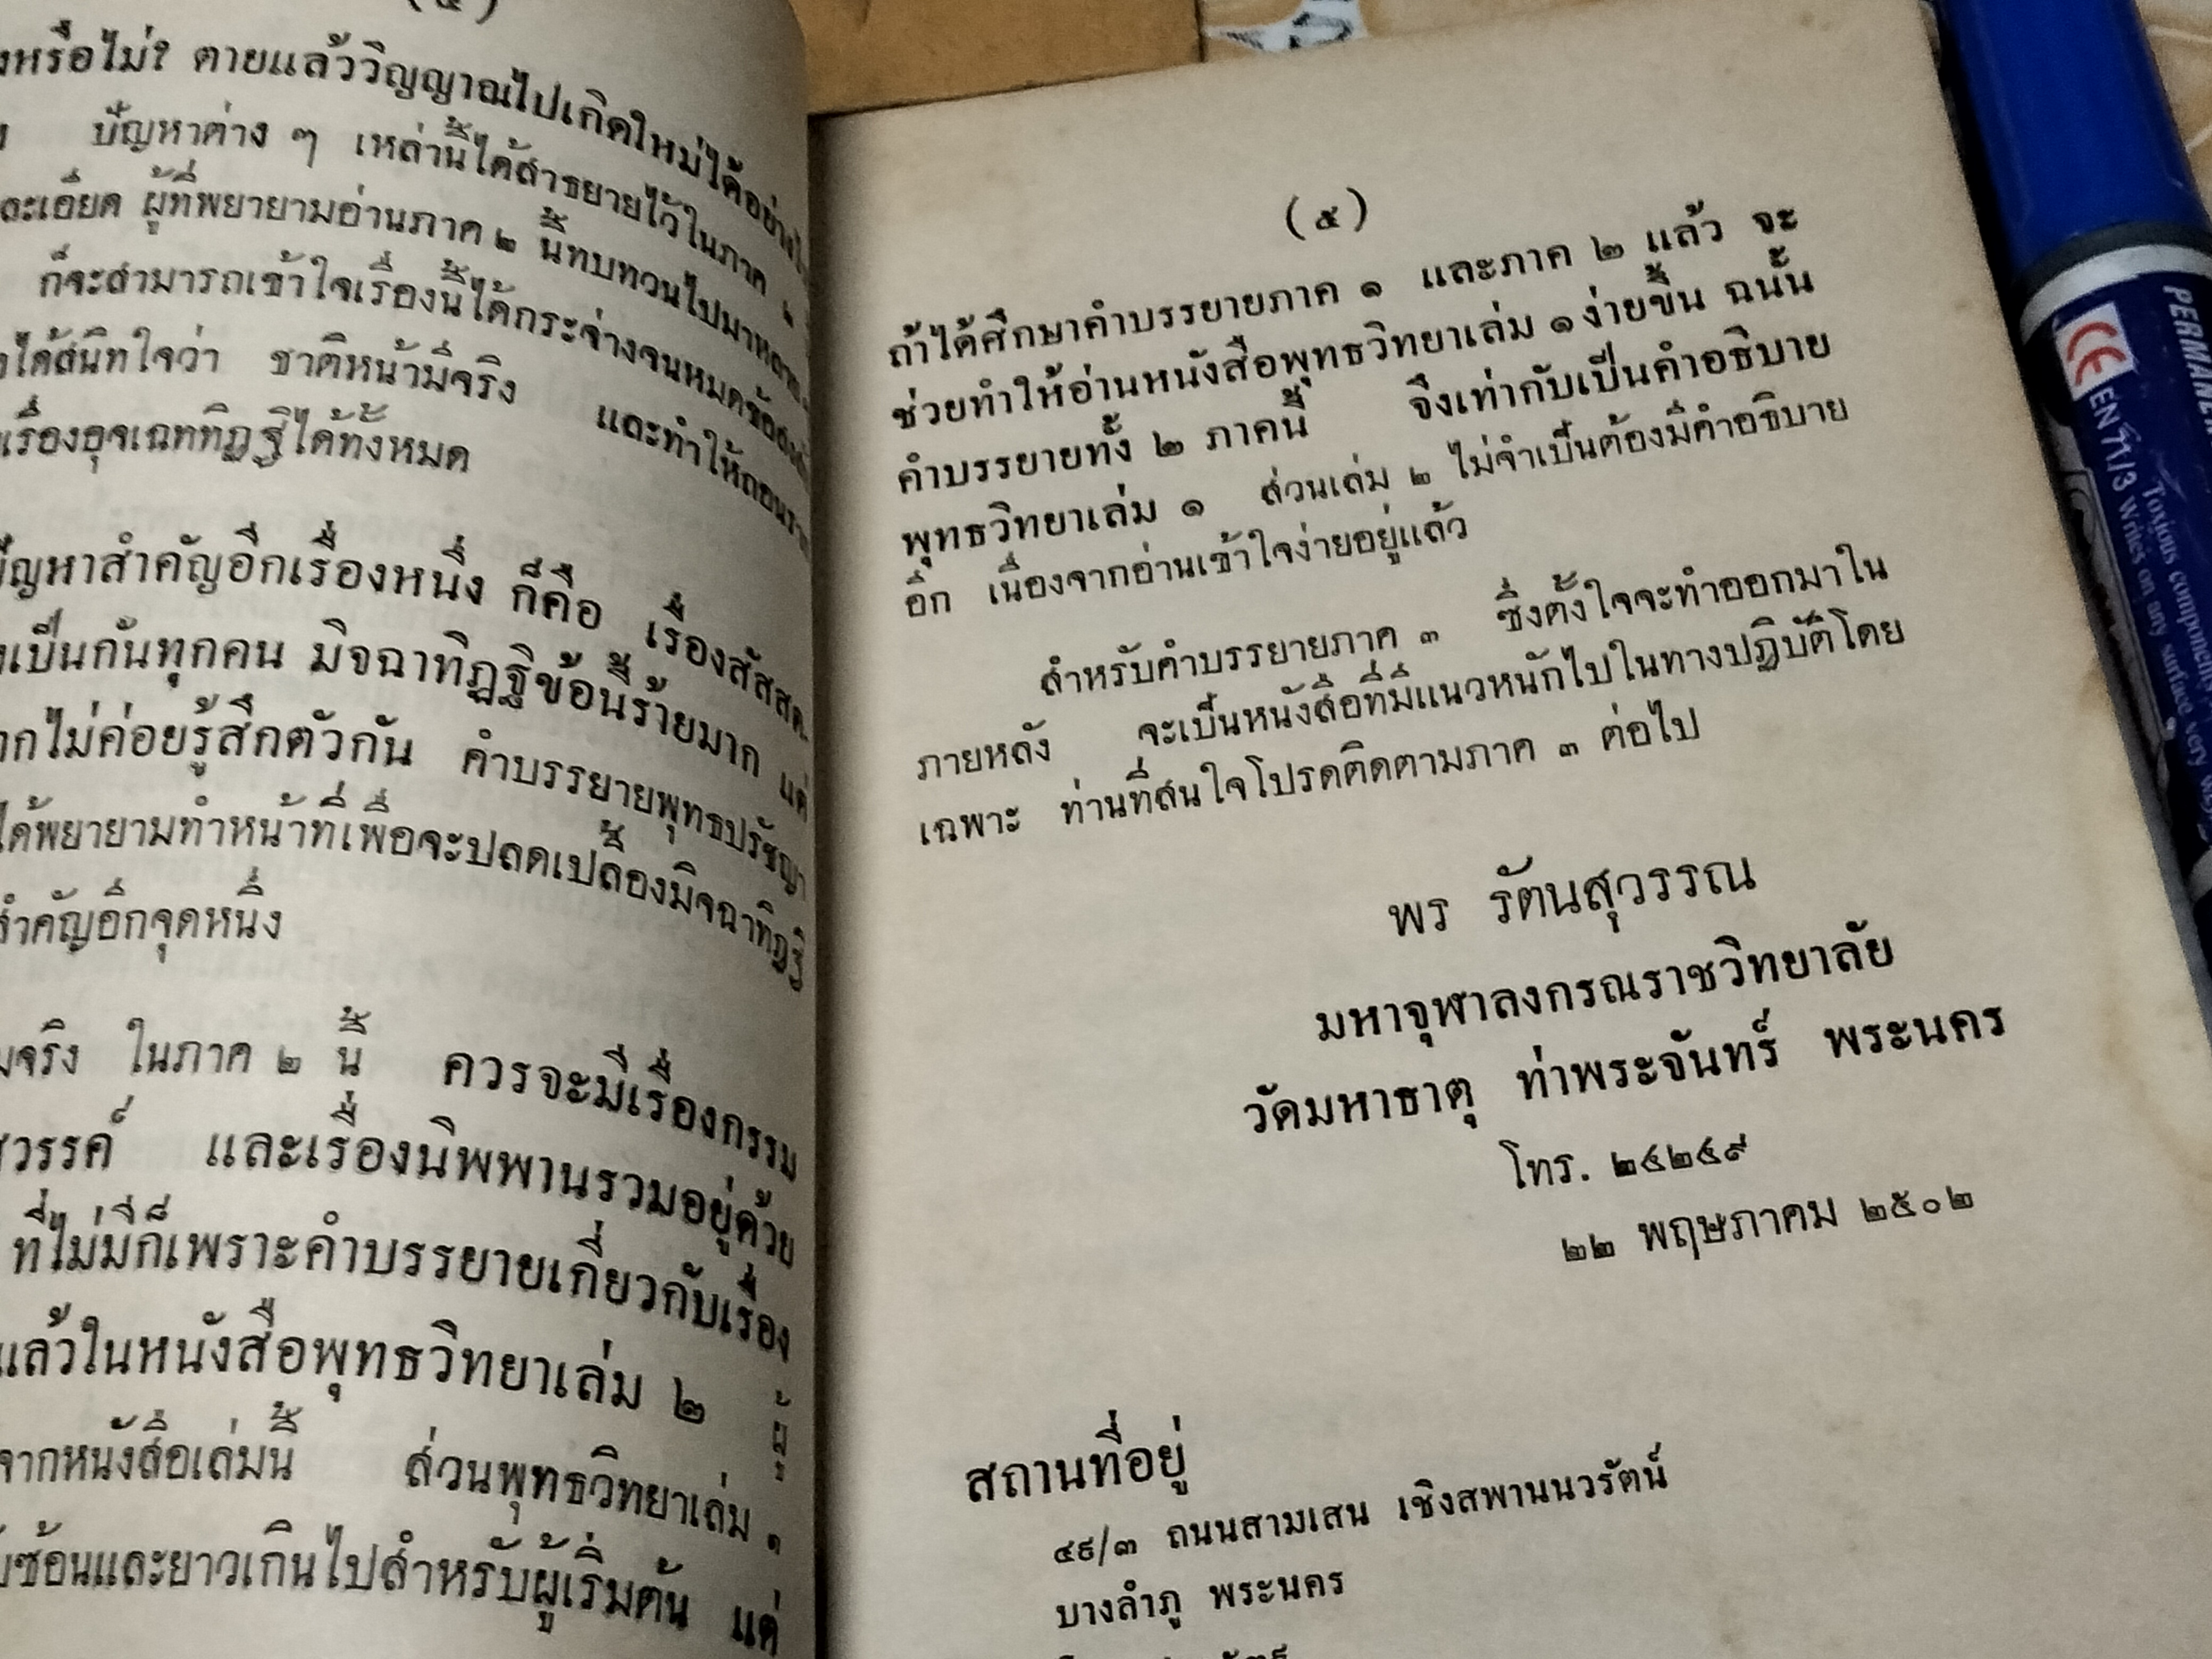 หรือไม่? ตายแล้ววิญญาณไปเกิดใหม่ได้อย่างไร
ปัญหาต่าง ๆ เหล่านี้ได้สาธยายไว้ในภาค ๒
ละเอียด ผู้ที่พยายามอ่านภาค ๒ นี้ทบทวนไปมาหลาย
ก็จะสามารถเข้าใจเรื่องนี้ได้กระจ่างจนหมดข้อสงสัย
ได้สนิทใจว่า ชาติหน้ามีจริง และทำให้ถอนราก
เรื่องอุจเฉททิฏฐิได้ทั้งหมด
ปัญหาสำคัญอีกเรื่องหนึ่ง ก็คือ เรื่องสัสสต-
เป็นกันทุกคน มิจฉาทิฏฐิข้อนี้ร้ายมาก แต่
ไม่ค่อยรู้สึกตัวกัน คำบรรยายพุทธปรัชญา
ได้พยายามทำหน้าที่เพื่อจะปลดเปลื้องมิจฉาทิฏฐิ
สำคัญอีกจุดหนึ่ง
จริง ในภาค ๒ นี้ ควรจะมีเรื่องกรรม
สวรรค์ และเรื่องนิพพานรวมอยู่ด้วย
ที่ไม่มีก็เพราะคำบรรยายเกี่ยวกับเรื่อง
แล้วในหนังสือพุทธวิทยาเล่ม ๒ ผู้
จากหนังสือเล่มนี้ ส่วนพุทธวิทยาเล่ม ๑
ซ้อนและยาวเกินไปสำหรับผู้เริ่มต้น แต่
(๕)
ถ้าได้ศึกษาคำบรรยายภาค ๑ และภาค ๒ แล้ว จะ
ช่วยทำให้อ่านหนังสือพุทธวิทยาเล่ม ๑ ง่ายขึ้น ฉนั้น
คำบรรยายทั้ง ๒ ภาคนี้ จึงเท่ากับเป็นคำอธิบาย
พุทธวิทยาเล่ม ๑ ส่วนเล่ม ๒ ไม่จำเป็นต้องมีคำอธิบาย
อีก เนื่องจากอ่านเข้าใจง่ายอยู่แล้ว
สำหรับคำบรรยายภาค ๓ ซึ่งตั้งใจจะทำออกมาใน
ภายหลัง จะเป็นหนังสือที่มีแนวหนักไปในทางปฏิบัติโดย
เฉพาะ ท่านที่สนใจโปรดติดตามภาค ๓ ต่อไป
พร รัตนสุวรรณ
มหาจุฬาลงกรณราชวิทยาลัย
วัดมหาธาตุ ท่าพระจันทร์ พระนคร
โทร. ๒๔๒๔๙
๒๒ พฤษภาคม ๒๕๐๒
สถานที่อยู่
๔๙/๓ ถนนสามเสน เชิงสพานนวรัตน์
บางลำภู พระนคร
PERMANENT
CE EN 71/3 Writes on any surface